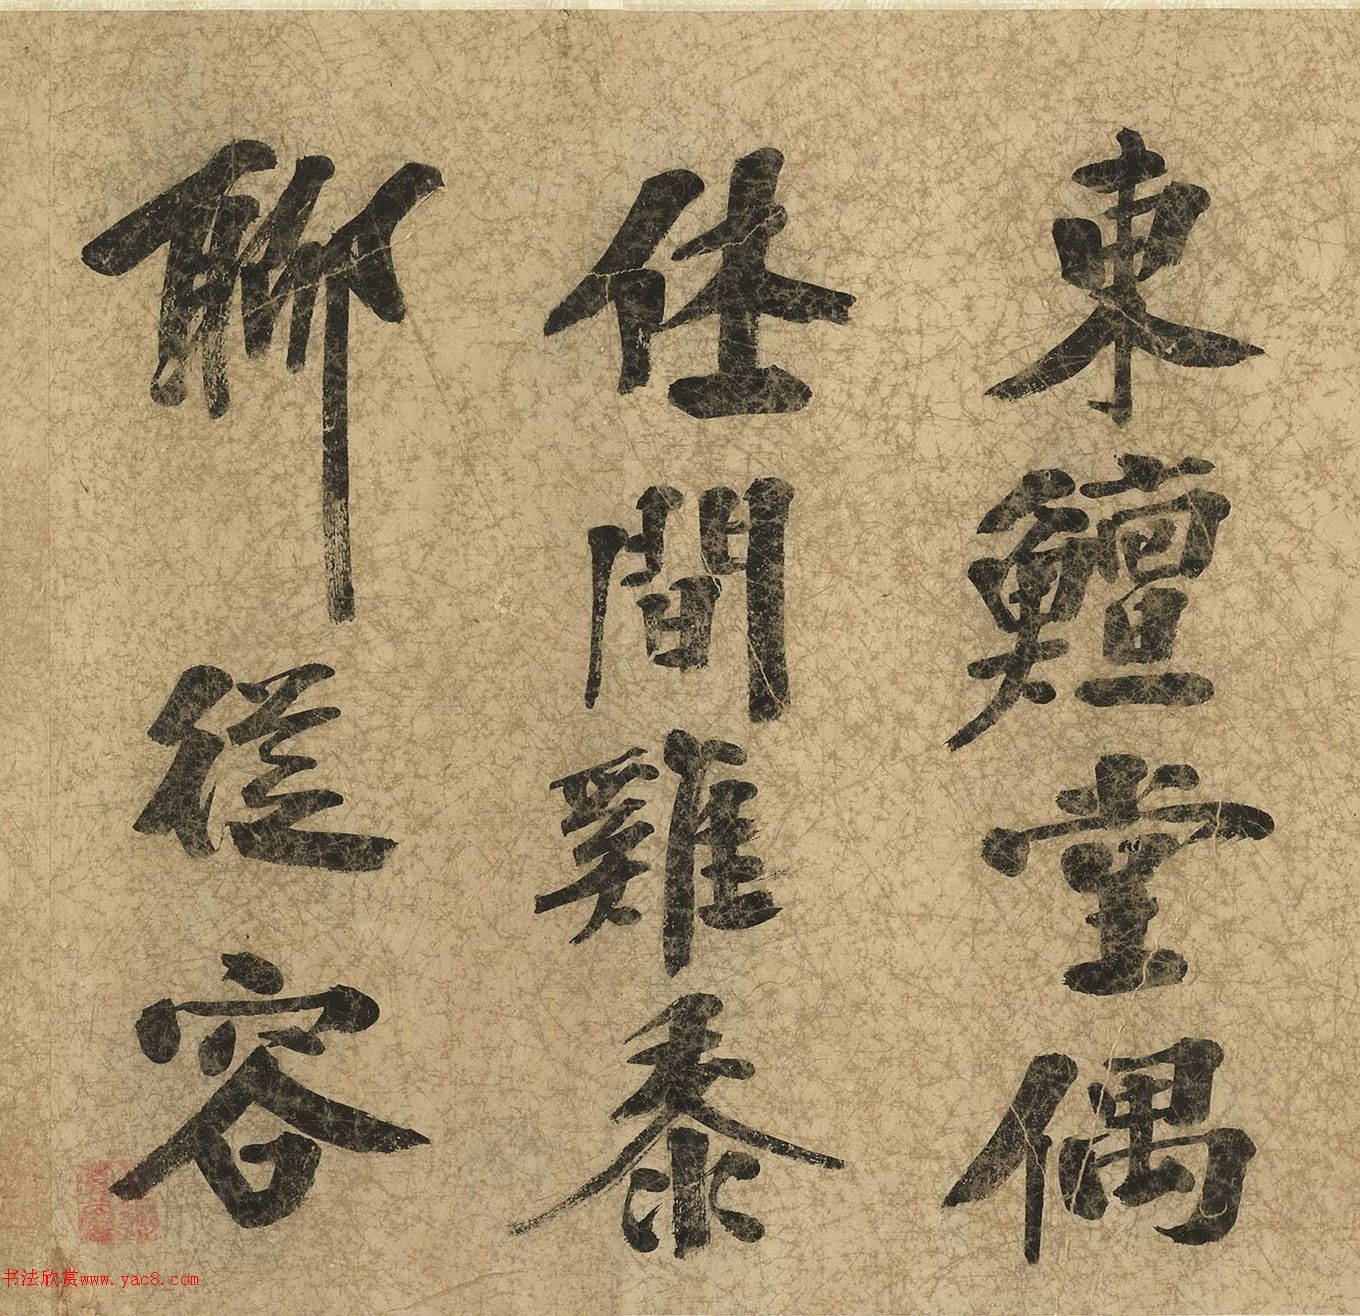 東鱣堂偶
仕間雞黍
聊從容
书法欣赏www.yac8.com